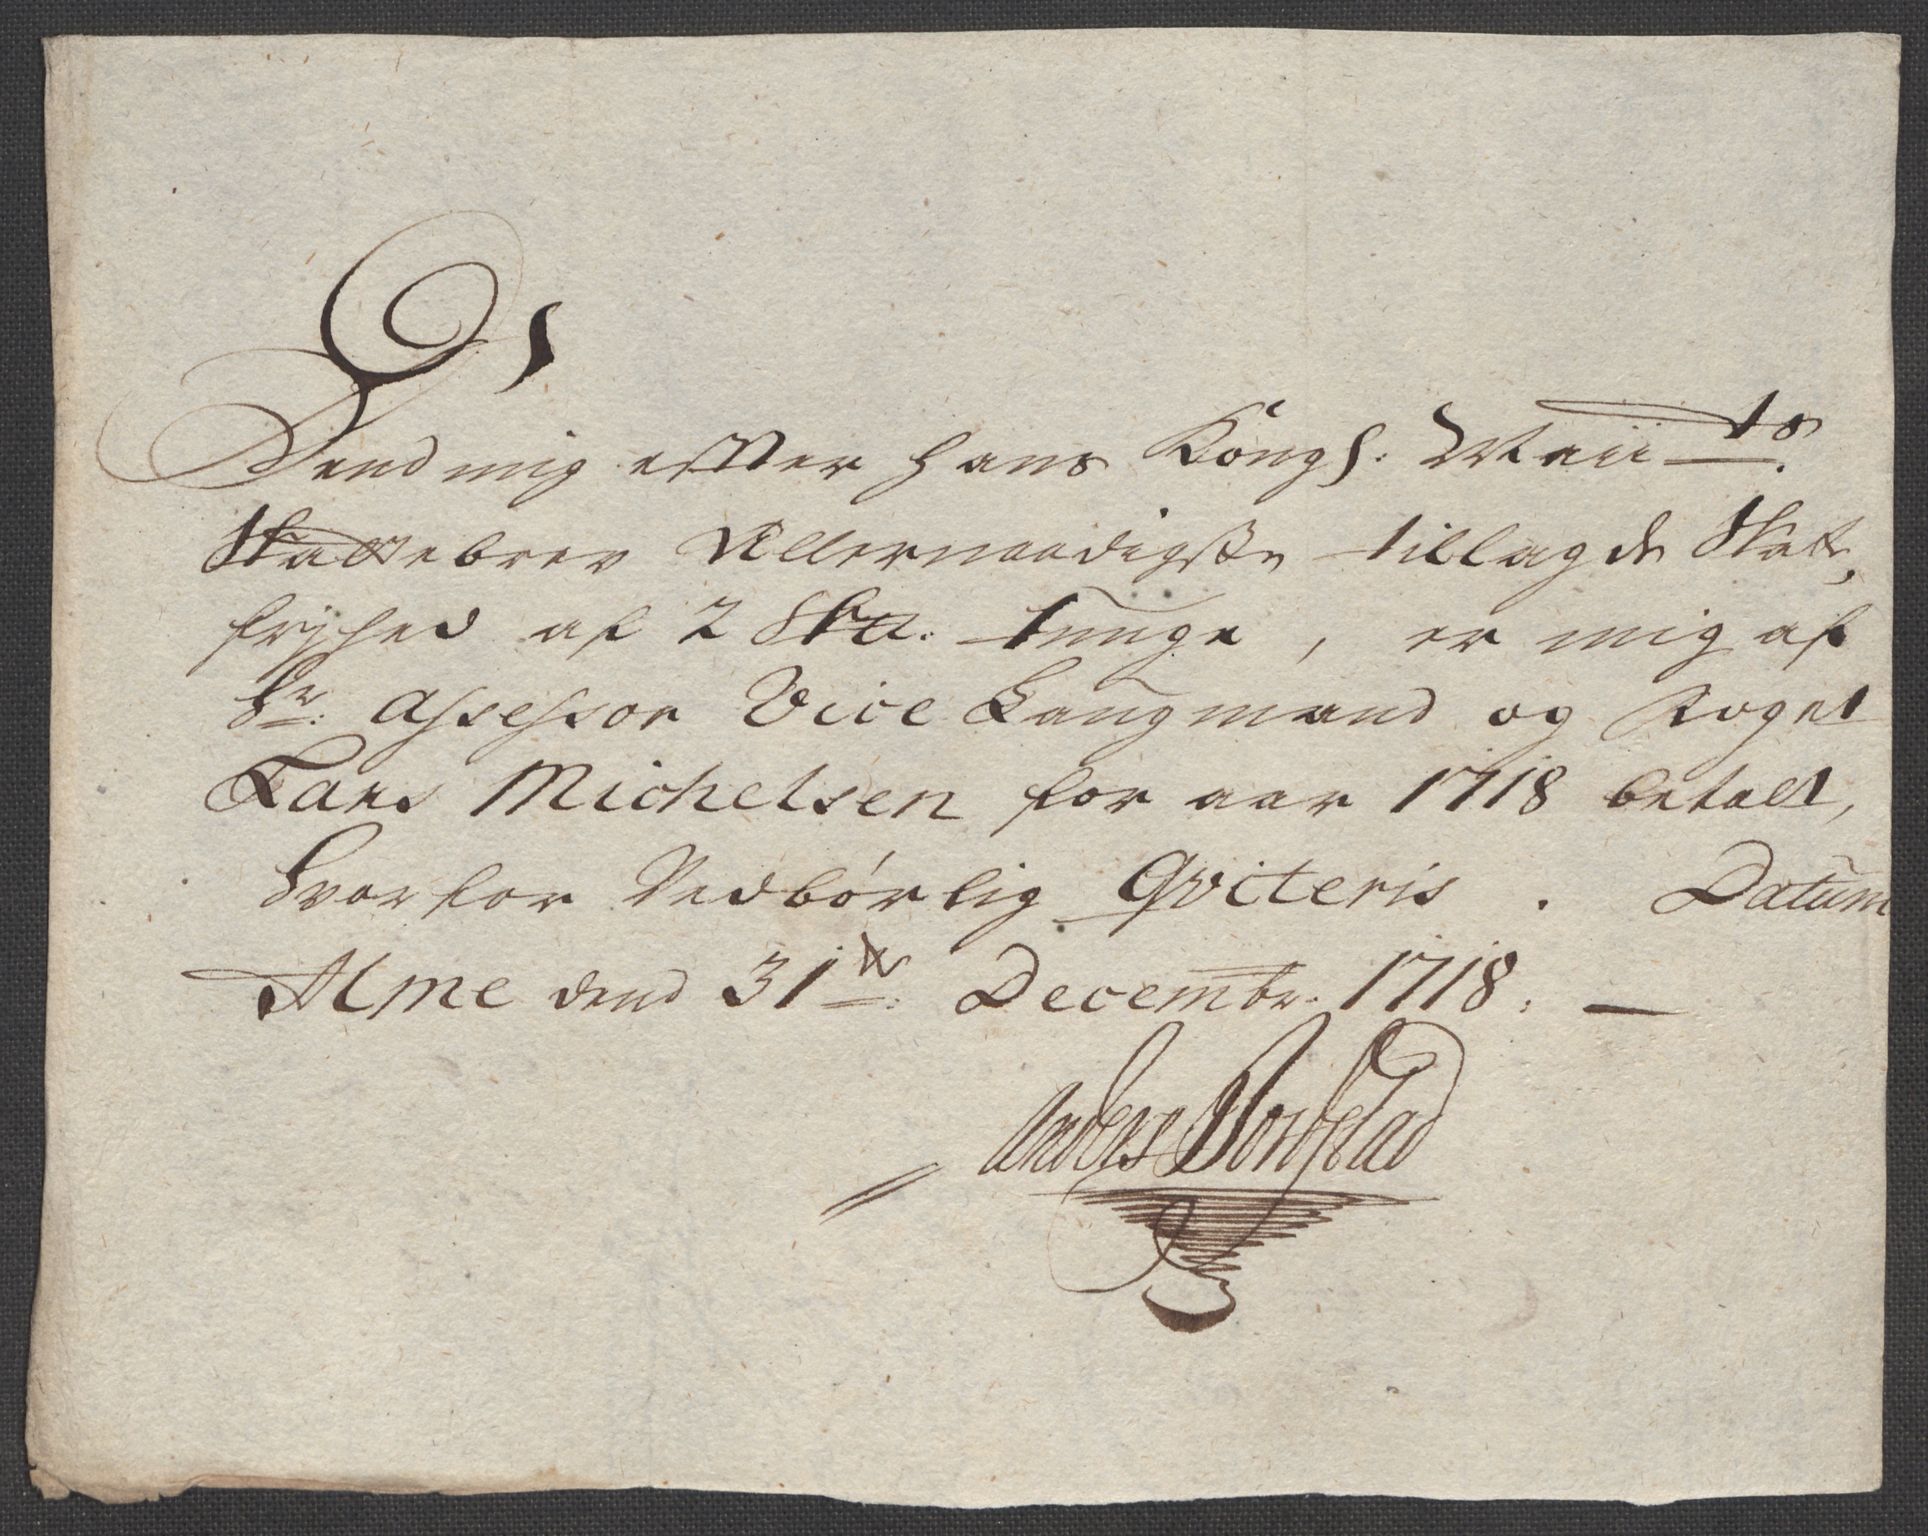 Dend mig effter hans Kongl. Maii ts.
Skattebrev Allernaadigste tillagde Skatt,
frjhed af 2 Skp. tunge, er mig af
Hr. Assessor Vice Laugmand og Foget
Lars Michelsen for aar 1718 betalt,
hvorfor Vedbørlig Qviteris. Datum
Alme dend 31te: Decembr. 1718. —
Anders